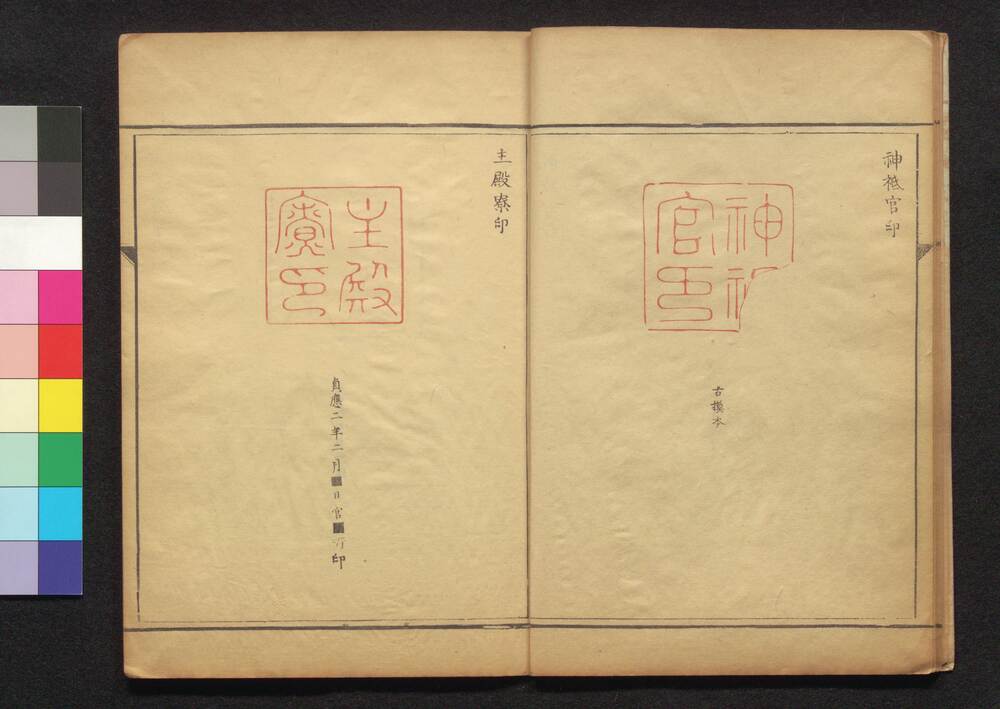 神祇官印
神祇
官印
古摸本
主殿寮印
主殿
寮印
貞應二年二月 日官 印